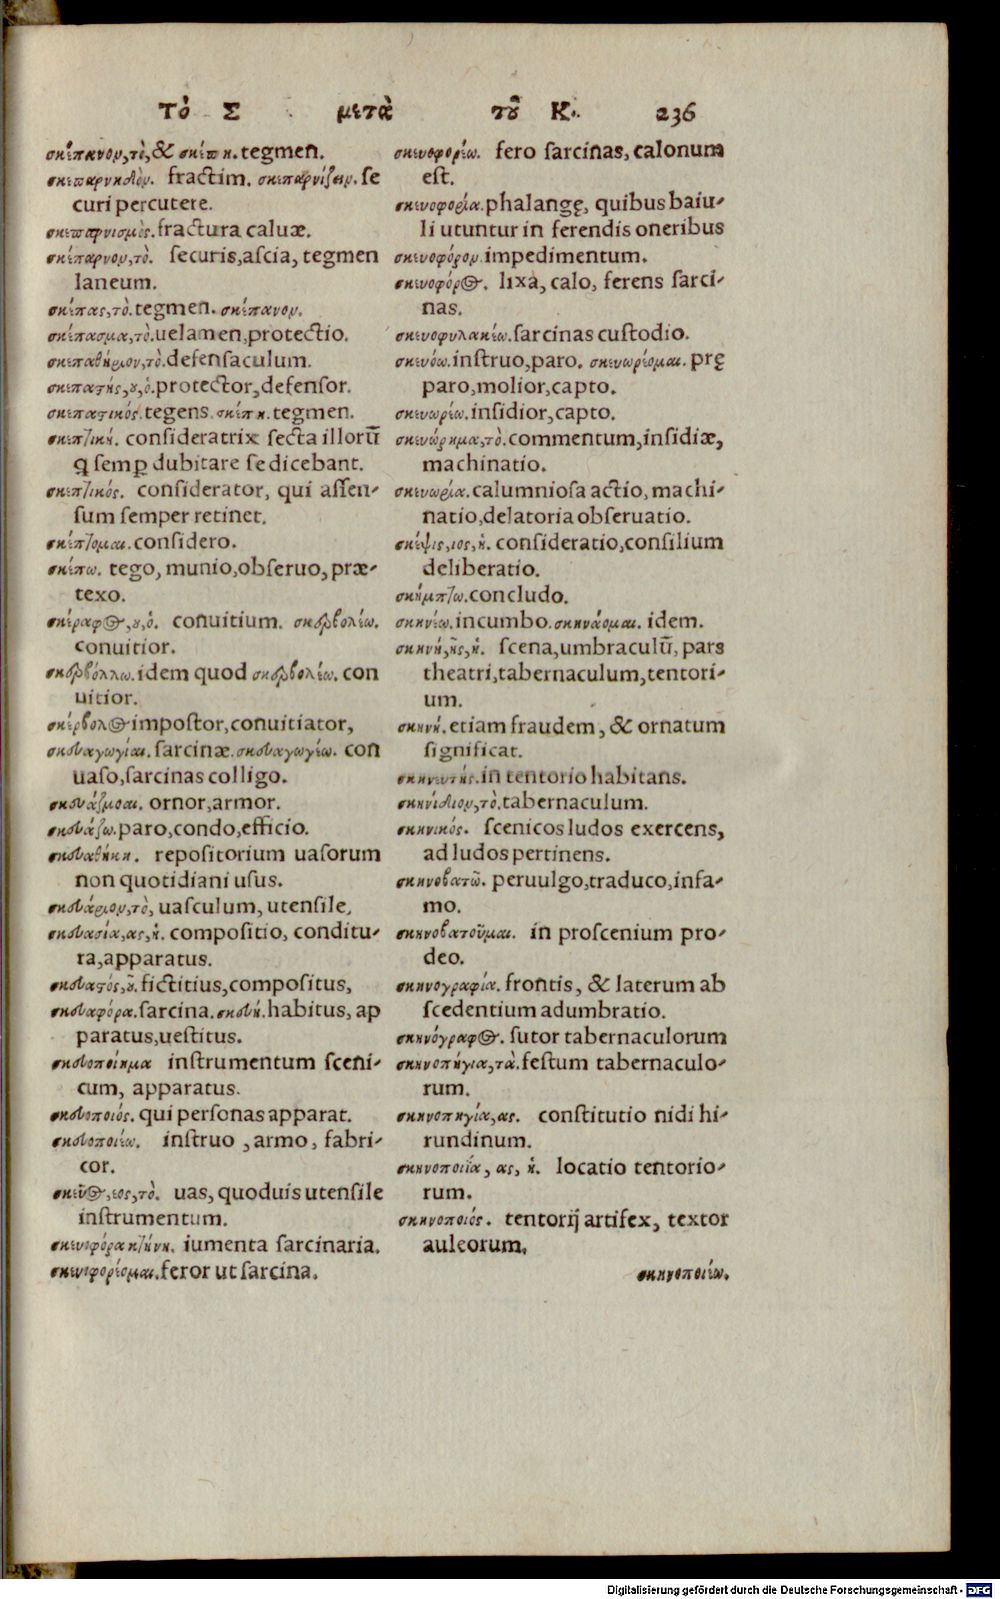 Τὸ Σ μετὰ τοῦ Κ. 236
σκέπανον, τὸ, & σκέπη. tegmen.
σκεπαρνηδὸν. fractim. σκεπαρνίζειν. se
curi percutere.
σκεπαρνισμὸς. fractura caluæ.
σκέπαρνον, τὸ. securis, ascia, tegmen
laneum.
σκέπας, τὸ. tegmen. σκέπανον.
σκέπασμα, τὸ. uelamen, protectio.
σκεπαθήριον, τὸ. defensaculum.
σκεπαστής, ου, ὁ. protector, defensor.
σκεπαστικός. tegens. σκέπη. tegmen.
σκεπτική. consideratrix secta illorū
q̄ semp dubitare se dicebant.
σκεπτικός. considerator, qui assen-
sum semper retinet.
σκέπτομαι. considero.
σκέπω. tego, munio, obseruo, præ-
texo.
σκέραφος, ου, ὁ. conuitium. σκερβολέω.
conuitior.
σκερβόλλω. idem quod σκερβολέω. con
uitior.
σκέρβολος impostor, conuitiator,
σκευαγωγίαι. sarcinæ. σκευαγωγέω. con
uaso, sarcinas colligo.
σκευάζομαι. ornor, armor.
σκευάζω. paro, condo, efficio.
σκευαθήκη. repositorium uasorum
non quotidiani usus.
σκευάριον, τὸ, uasculum, utensile,
σκευασία, ας, ἡ. compositio, conditu-
ra, apparatus.
σκευαστός, οῦ. fictitius, compositus,
σκευαφόρα. sarcina. σκευή. habitus, ap
paratus, uestitus.
σκευοποίημα instrumentum sceni-
cum, apparatus.
σκευοποιός. qui personas apparat.
σκευοποιέω. instruo, armo, fabri-
cor.
σκεῦος, εος, τὸ. uas, quoduis utensile
instrumentum.
σκευοφόρα κτήνη. iumenta sarcinaria.
σκευοφορέομαι. feror ut sarcina.
σκευοφορέω. fero sarcinas, calonum
est.
σκευοφορία. phalangę, quibus baiu-
li utuntur in ferendis oneribus
σκευοφόρον. impedimentum.
σκευοφόρος. lixa, calo, ferens sarci-
nas.
σκευοφυλακέω. sarcinas custodio.
σκευόω. instruo, paro. σκευωρέομαι. prę
paro, molior, capto.
σκευωρέω. insidior, capto.
σκευώρημα, τὸ. commentum, insidiæ,
machinatio.
σκευωρία. calumniosa actio, machi-
natio, delatoria obseruatio.
σκέψις, ιος, ἡ. consideratio, consilium
deliberatio.
σκήμπτω. concludo.
σκηνέω. incumbo. σκηνάομαι. idem.
σκηνή, ῆς, ἡ. scena, umbraculū, pars
theatri, tabernaculum, tentori-
um.
σκηνή. etiam fraudem, & ornatum
significat.
σκηνευτής. in tentorio habitans.
σκηνίδιον, τὸ. tabernaculum.
σκηνικός. scenicos ludos exercens,
ad ludos pertinens.
σκηνοβατῶ. peruulgo, traduco, infa-
mo.
σκηνοβατοῦμαι. in proscenium pro-
deo.
σκηνογραφία. frontis, & laterum ab
scedentium adumbratio.
σκηνόγραφος. sutor tabernaculorum
σκηνοπήγια, τὰ. festum tabernaculo-
rum.
σκηνοπηγία, ας. constitutio nidi hi-
rundinum.
σκηνοποιία, ας, ἡ. locatio tentorio-
rum.
σκηνοποιός. tentorij artifex, textor
auleorum.
σκηνοποιέω.
Digitalisierung gefördert durch die Deutsche Forschungsgemeinschaft - DFG